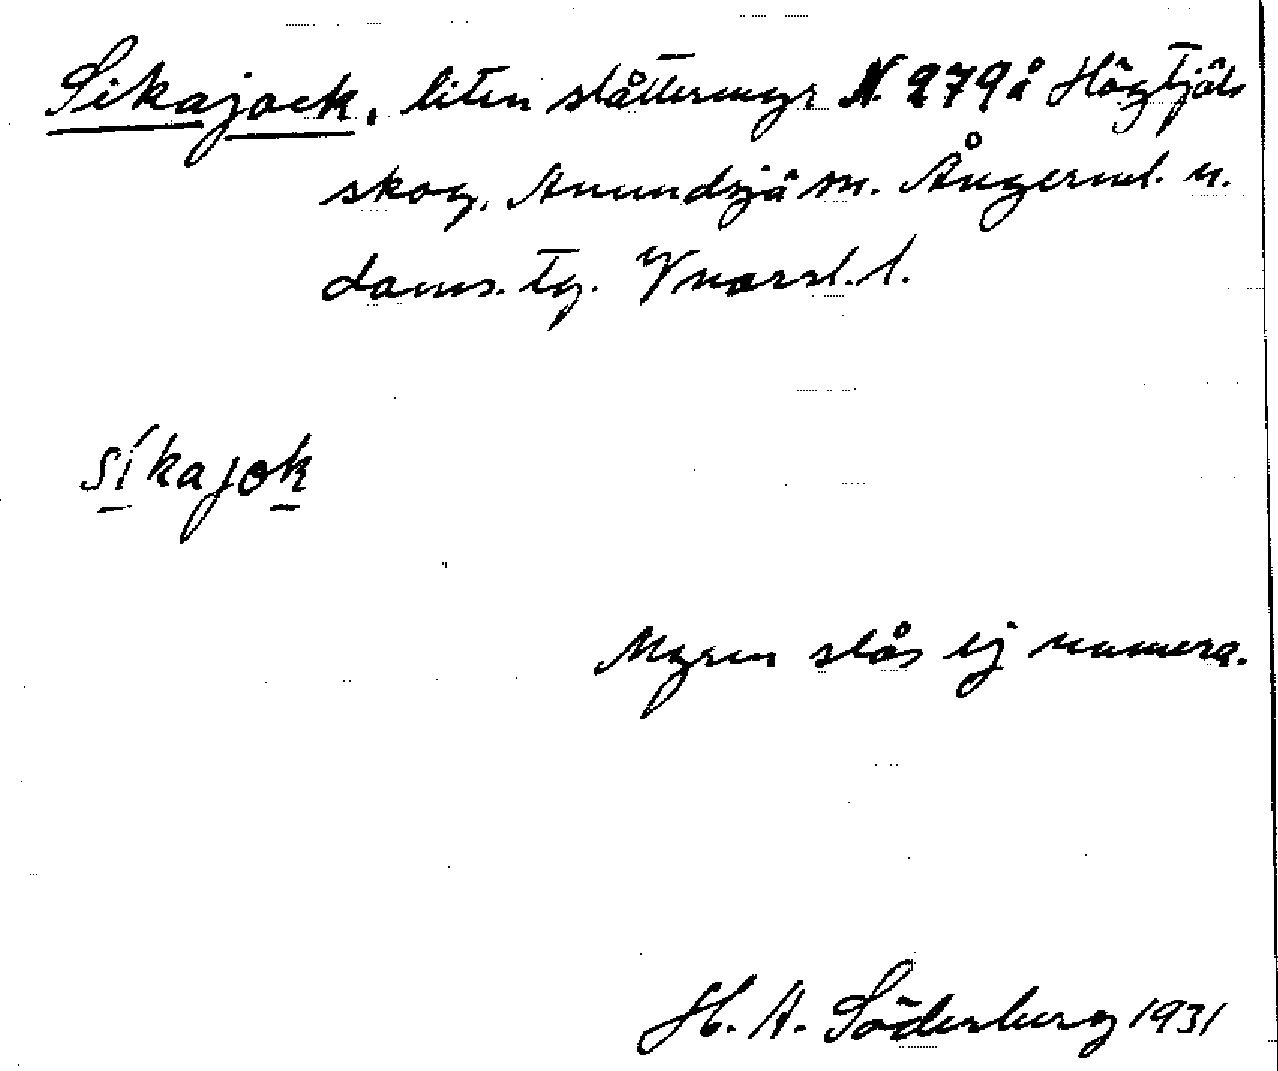 Sikajock, liten slåttermyr N. 279 å Högtjäls
skog, Anundsjö sn. Ångerml. n.
doms. tg. Vnorrl. l.
síkajok
Myren slås ej numera.
H. A. Söderberg 1931